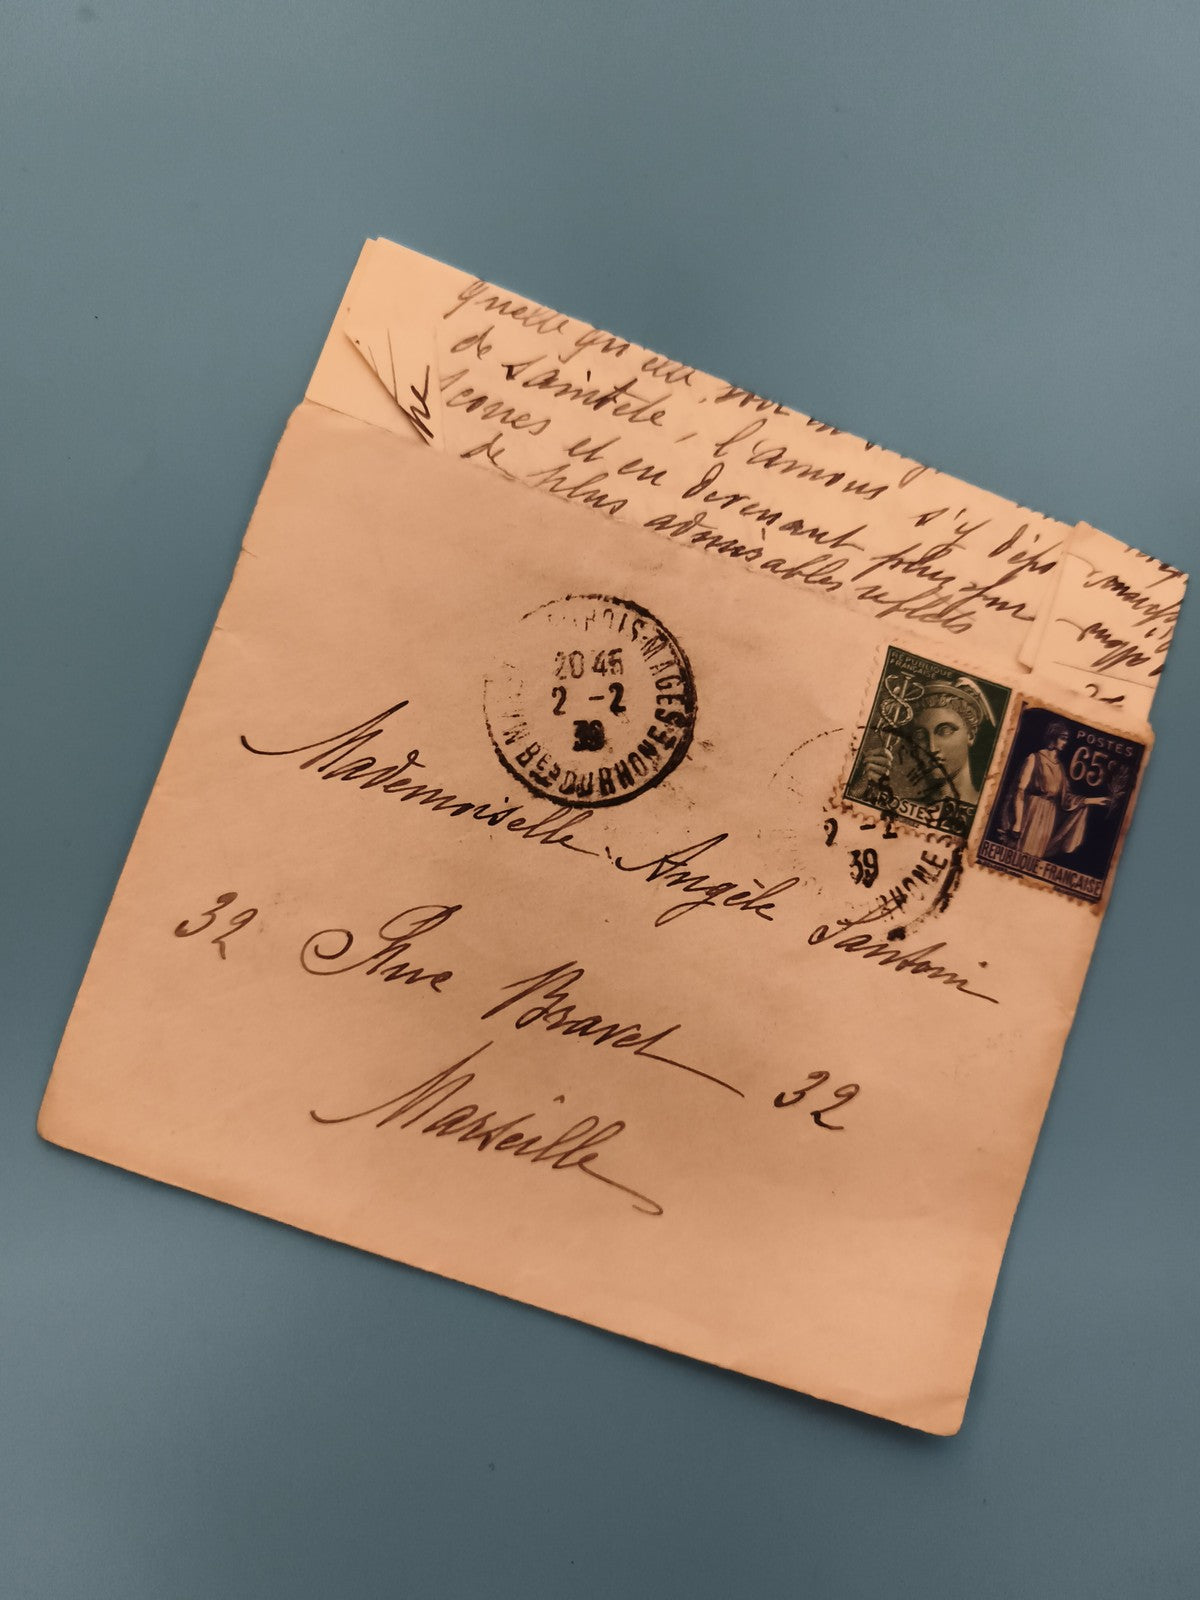 de sainteté, l'amour s'y dépo
et en devenant plus pur
de plus admirables reflets
TROIS-MAGES
20 45
2 -2
39
BES DU RHONE
RÉPUBLIQUE
FRANÇAISE
POSTES 25c
POSTES
65c
RÉPUBLIQUE-FRANÇAISE
2 -2
39
RHONE
Mademoiselle Angèle Santoni
32 Rue Bravet 32
Marseille